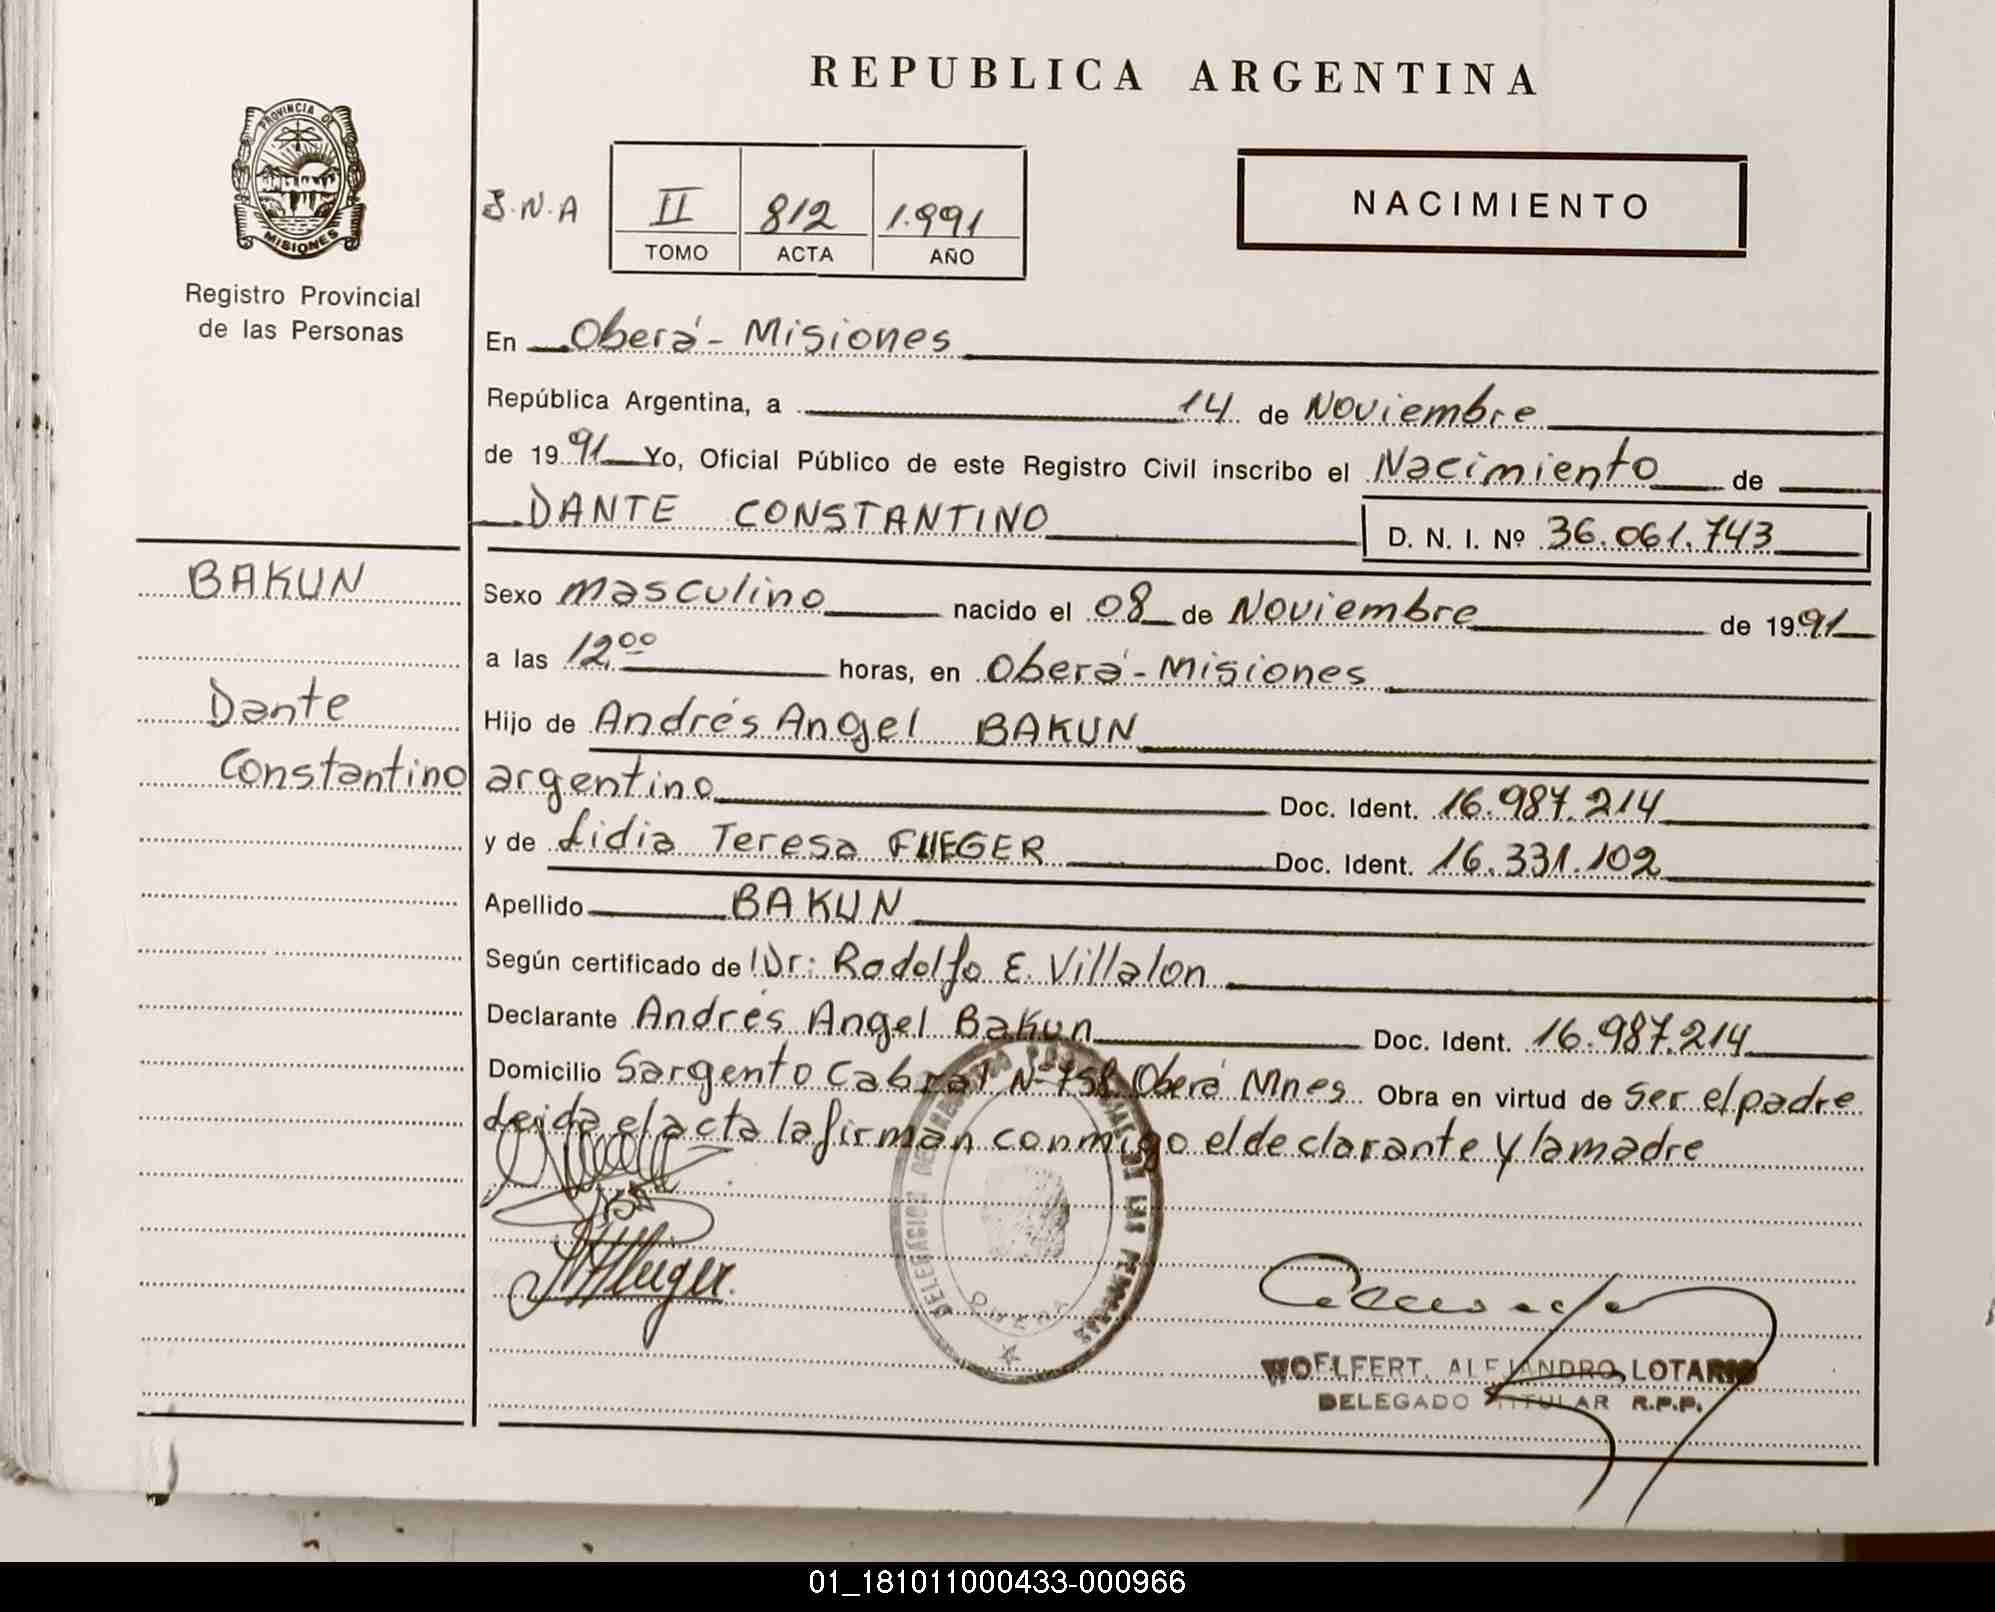 REPUBLICA ARGENTINA
PROVINCIA DE
MISIONES
Registro Provincial
de las Personas
S.N.A
II 812 1.991
TOMO ACTA AÑO
NACIMIENTO
En Oberá - Misiones
República Argentina, a 14 de Noviembre
de 1991 Yo, Oficial Público de este Registro Civil inscribo el Nacimiento de
DANTE CONSTANTINO D. N. I. Nº 36.061.743
BAKUN
Dante
Constantino
Sexo masculino nacido el 08 de Noviembre de 1991
a las 12,00 horas, en Oberá - Misiones
Hijo de Andrés Angel BAKUN
argentino Doc. Ident. 16.987.214
y de Lidia Teresa FLIEGER Doc. Ident. 16.331.102
Apellido BAKUN
Según certificado de Dr: Rodolfo E. Villalon
Declarante Andrés Angel Bakun Doc. Ident. 16.987.214
Domicilio Sargento Cabral Nº 758 Oberá Mnes Obra en virtud de ser el padre
Leida el acta la firman conmigo el declarante y la madre
DELEGACION DE LAS PERSONAS
OBERA
WOELFERT, ALEJANDRO LOTARIO
DELEGADO TITULAR R.P.P.
01_181011000433-000966